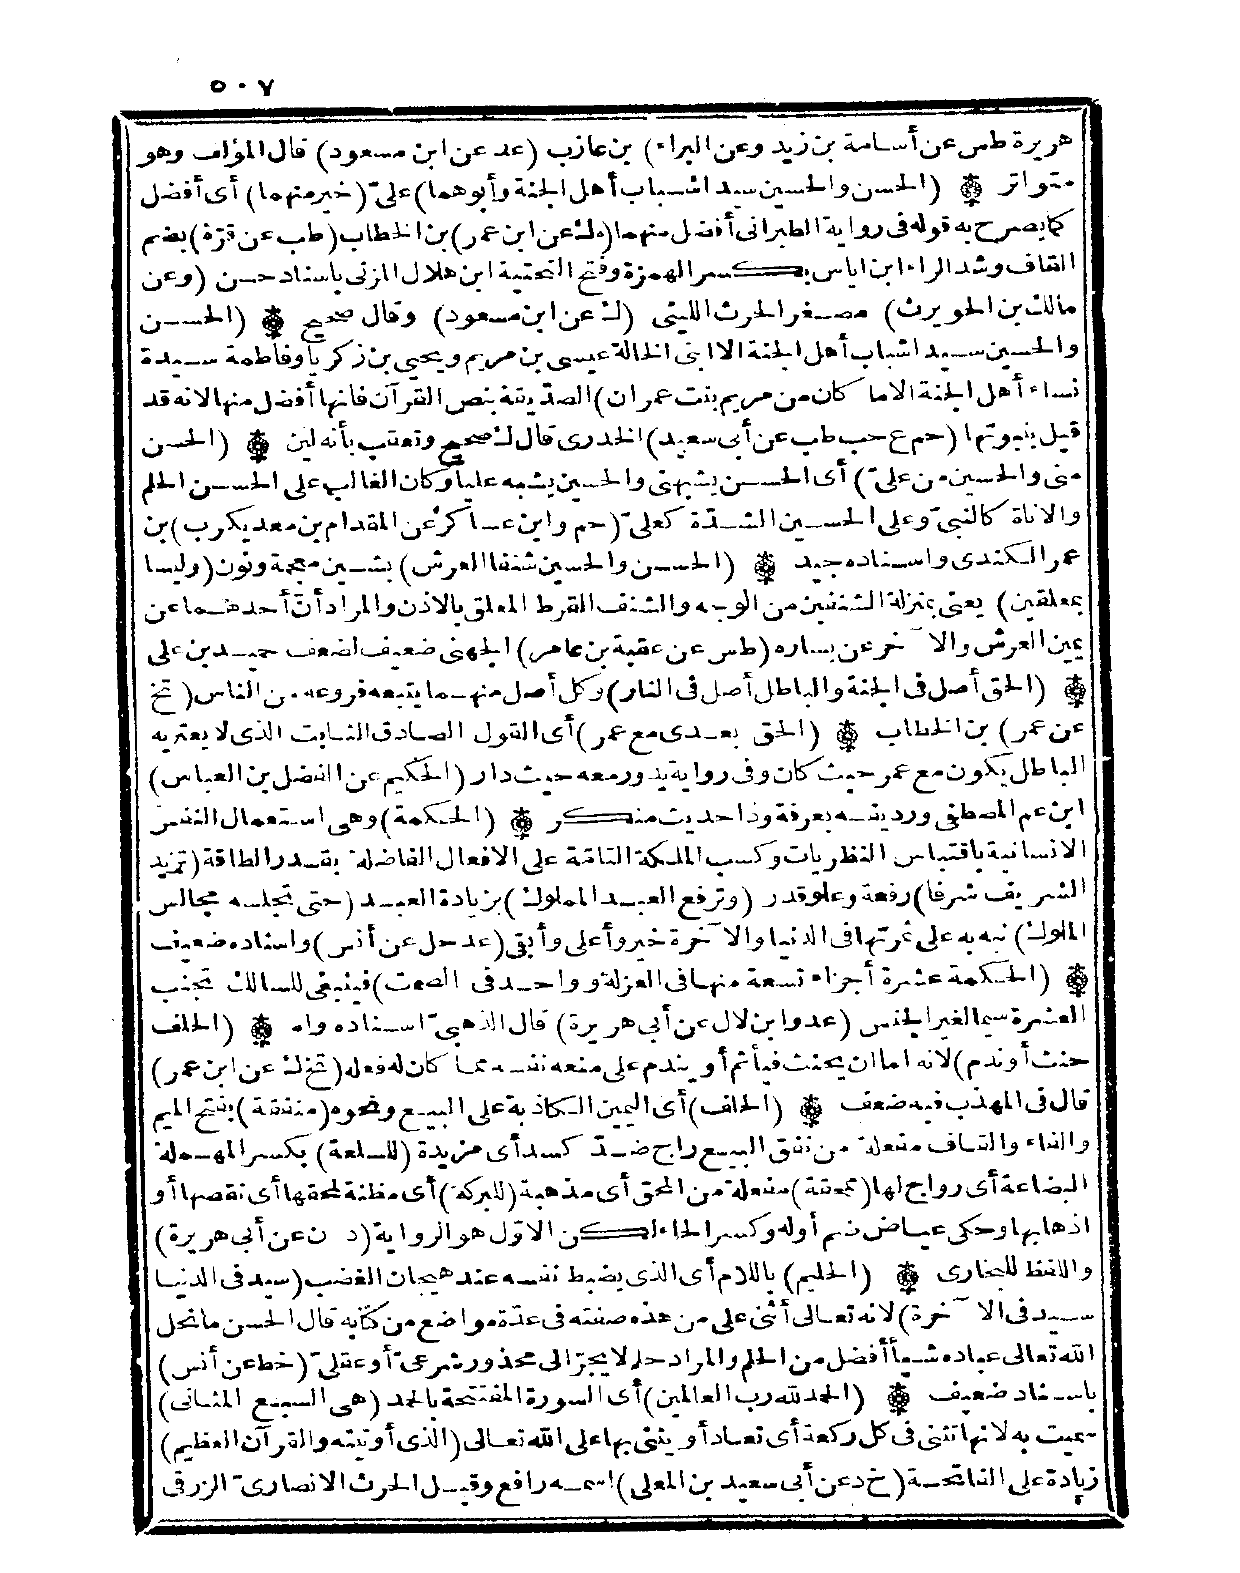 ٥٠٧
هريرة طس عن أسامة بن زيد وعن البراء) بن عازب (عد عن ابن مسعود) قال المؤلف وهو
متواتر ۞ (الحسن والحسين سيدا شباب أهل الجنة وأبوهما) علىّ (خير منهما) أى أفضل
كما يصرح به قوله فى رواية الطبرانى أفضل منهما (ه ك عن ابن عمر) بن الخطاب (طب عن قرة) بضم
القاف وشد الراء ابن اياس بكسر الهمزة وفتح التحتية ابن هلال المزنى باسناد حسن (وعن
مالك بن الحويرث) مصغر الحرث الليثى (ك عن ابن مسعود) وقال صحيح ۞ (الحسن
والحسين سيدا شباب أهل الجنة الا ابنى الخالة عيسى بن مريم ويحيى بن زكريا وفاطمة سيدة
نساء أهل الجنة الا ما كان من مريم بنت عمران) الصديقة بنص القرآن فانها أفضل منها لانه قد
قيل بنبوتها (حم ع حب طب عن أبى سعيد) الخدرى قال ك صحيح وتعقب بأنه لين ۞ (الحسن
منى والحسين من علىّ) أى الحسن يشبهنى والحسين يشبه عليا وكان الغالب على الحسن الحلم
والاناة كالنبىّ وعلى الحسين الشدّة كعلىّ (حم وابن عساكر عن المقدام بن معديكرب) بن
عمر الكندى واسناده جيد ۞ (الحسن والحسين شنفا العرش) بشين معجمة ونون (وليسا
بمعلقين) يعنى بمنزلة الشنفين من الوجه والشنف القرط المعلق بالاذن والمراد أنّ أحدهما عن
يمين العرش والآخر عن يساره (طس عن عقبة بن عامر) الجهنى ضعيف لضعف حميد بن على
۞ (الحق أصل فى الجنة والباطل أصل فى النار) وكل أصل منهما يتبعه فروعه من الناس (تخ
عن عمر) بن الخطاب ۞ (الحق بعدى مع عمر) أى القول الصادق الثابت الذى لا يعتريه
الباطل يكون مع عمر حيث كان وفى رواية يدور معه حيث دار (الحكيم عن الفضل بن العباس)
ابن عم المصطفى ورديفه بعرفة وذا حديث منكر ۞ (الحكمة) وهى استعمال النفس
الانسانية باقتباس النظريات وكسب الملكة التامّة على الافعال الفاضلة بقدر الطاقة (تزيد
الشريف شرفا) رفعة وعلو قدر (وترفع العبد المملوك) بزيادة العبد (حتى تجلسه مجالس
الملوك) نبه به على ثمرتها فى الدنيا والآخرة خير وأعلى وأبقى (عد حل عن أنس) واسناده ضعيف
۞ (الحكمة عشرة أجزاء تسعة منها فى العزلة وواحد فى الصمت) فينبغى للسالك تجنب
العشرة سيما لغير الجنس (عد وابن لال عن أبى هريرة) قال الذهبىّ اسناده واه ۞ (الحلف
حنث أو ندم) لانه اما ان يحنث فيأثم أو يندم على منعه نفسه مما كان له فعله (تخ ك عن ابن عمر)
قال فى المهذب فيه ضعف ۞ (الحلف) أى اليمين الكاذبة على البيع ونحوه (منفقة) بفتح الميم
والفاء والقاف مفعلة من نفق البيع راج ضدّ كسد أى مزيدة (للسلعة) بكسر المهملة
البضاعة أى رواج لها (ممحقة) مفعلة من المحق أى مذهبة (للبركة) أى مظنة لمحقها أى نقصها أو
اذهابها وحكى عياض ضم أوله وكسر الحاء لكن الاوّل هو الرواية (د ن عن أبى هريرة)
واللفظ للبخارى ۞ (الحليم) باللام أى الذى يضبط نفسه عند هيجان الغضب (سيد فى الدنيا
سيد فى الآخرة) لانه تعالى أثنى على من هذه صفته فى عدّة مواضع من كتابه قال الحسن ما نحل
الله تعالى عباده شيأ أفضل من الحلم والمراد حلم لا يجرّ الى محذور شرعىّ أو عقلىّ (خط عن أنس)
باسناد ضعيف ۞ (الحمد لله رب العالمين) أى السورة المفتتحة بالحمد (هى السبع المثانى)
سميت به لانها تثنى فى كل ركعة أى تعاد أو يثنى بها على الله تعالى (الذى أوتيته والقرآن العظيم)
زيادة على الفاتحة (خ د عن أبى سعيد بن المعلى) اسمه رافع وقيل الحرث الانصارىّ الزرقى